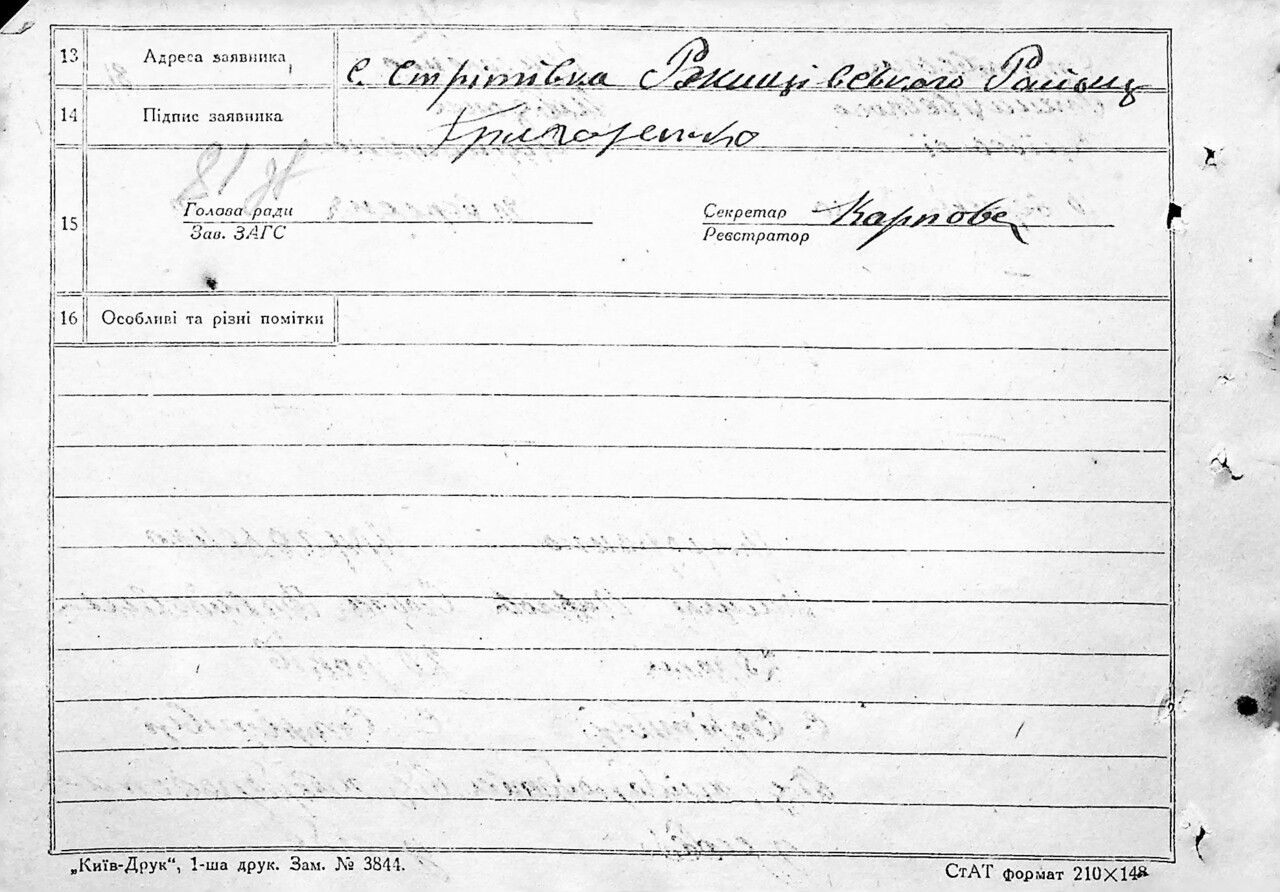 13 Адреса заявника с. Стрітівка Ржищівського Району
14 Підпис заявника Григоренко
15
Голова ради
Зав. ЗАГС
Секретар Карпова
Реєстратор
16 Особливі та різні помітки
„Київ-Друк“, 1-ша друк. Зам. № 3844.
СтАТ формат 210×148